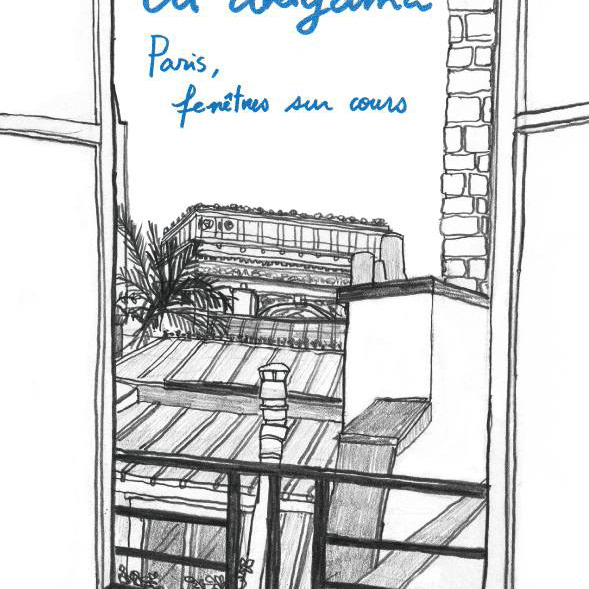 Paris,
fenêtres sur cours